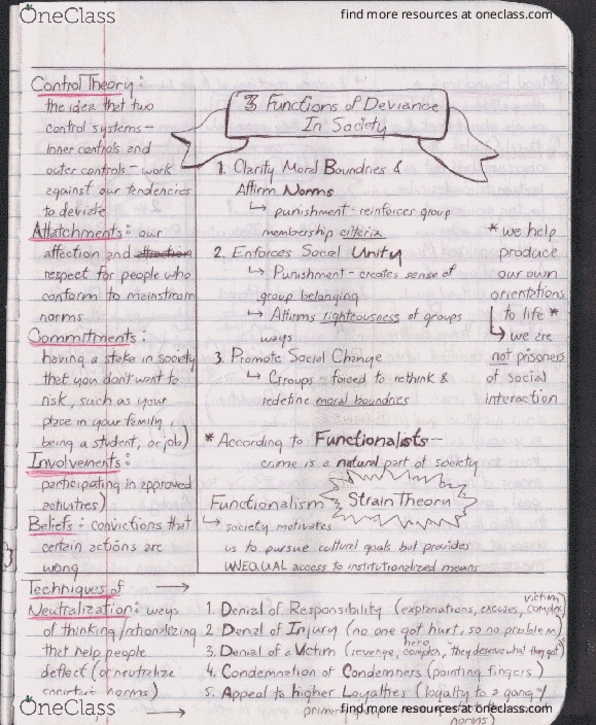 OneClass
find more resources at oneclass.com
Control Theory:
the idea that two
control systems-
inner controls and
outer controls - work
against our tendencies
to deviate
Attatchments: our
affection and attraction
respect for people who
conform to mainstream
norms
Committments:
having a stake in society
that you don't want to
risk, such as your
place in your family,
being a student, or job)
Involvements:
participating in approved
activities)
Beliefs: convictions that
certain actions are
wong
3 Functions of Deviance
In Society
1. Clarity Moral Boundries &
Affirm Norms
↳ punishment - reinforces group
membership criteria
2. Enforces Social Unity
↳ Punishment - creates sense of
group belonging
↳ Affirms righteousness of groups
ways
3. Promote Social Change
↳ Groups - forced to rethink &
redefine moral boundries
* we help
produce
our own
orientations
to life *
↳ we are
not prisoners
of social
interaction
* According to Functionalists-
crime is a natural part of society
Functionalism Strain Theory
↳ society motivates
us to pursue cultural goals but provides
UNEQUAL access to institutionalized means
Techniques of →
Neutralization: ways
of thinking/rationalizing
that help people
deflect (or neutralize
norms)
→
1. Denial of Responsibility (explanations, excuses, victim complex)
2 Denial of Injury (no one got hurt, so no problem)
3. Denial of a Victim (revenge, hero complex, they deserve what they got)
4. Condemnation of Condemners (pointing fingers)
5. Appeal to higher Loyaltties (loyalty to a gang/
norms)
OneClass
find more resources at oneclass.com